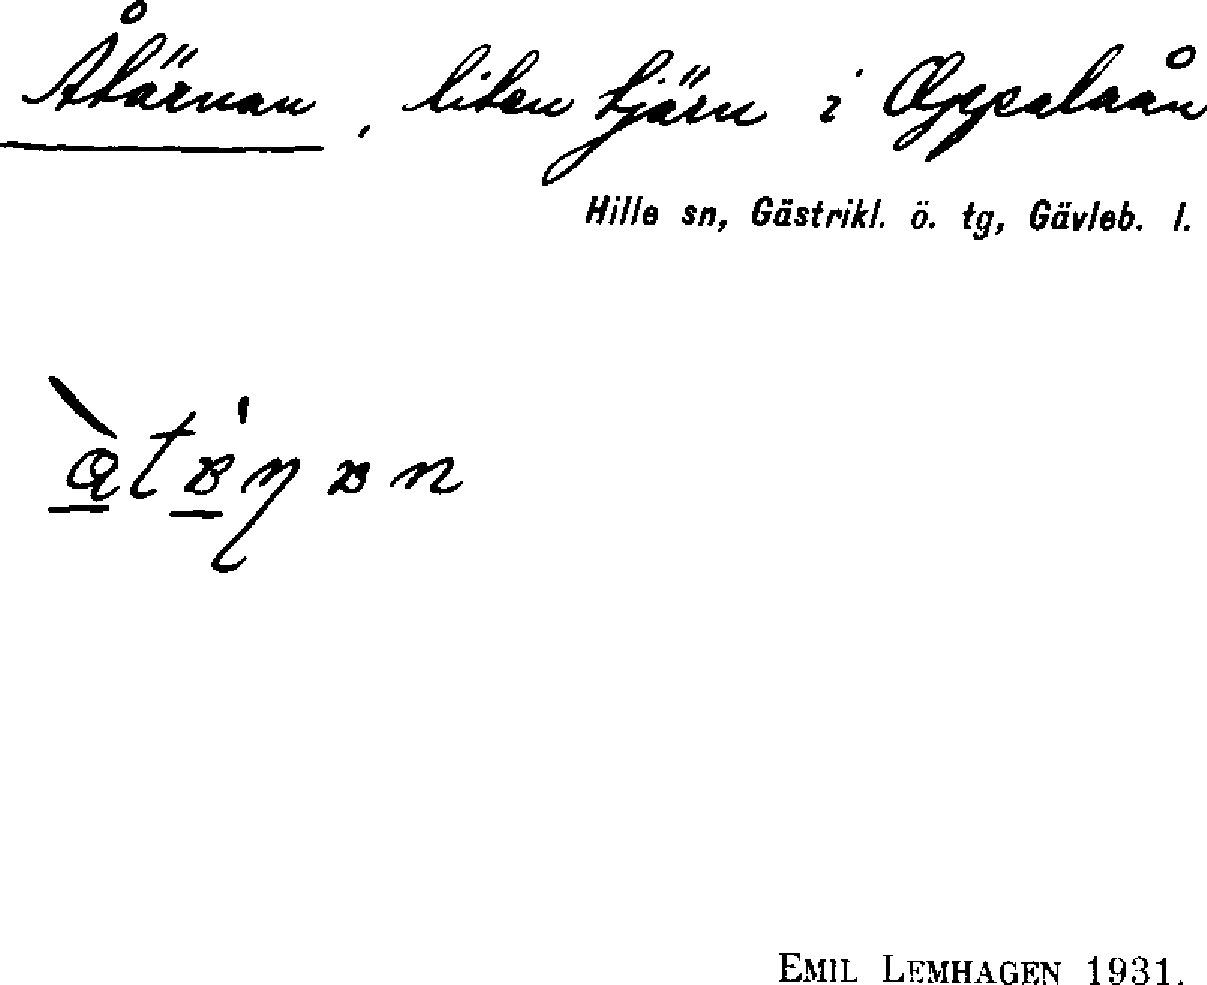 Åtärnan, liten tjärn i Oppalaån
Hille sn, Gästrikl. ö. tg, Gävleb. l.
EMIL LEMHAGEN 1931.